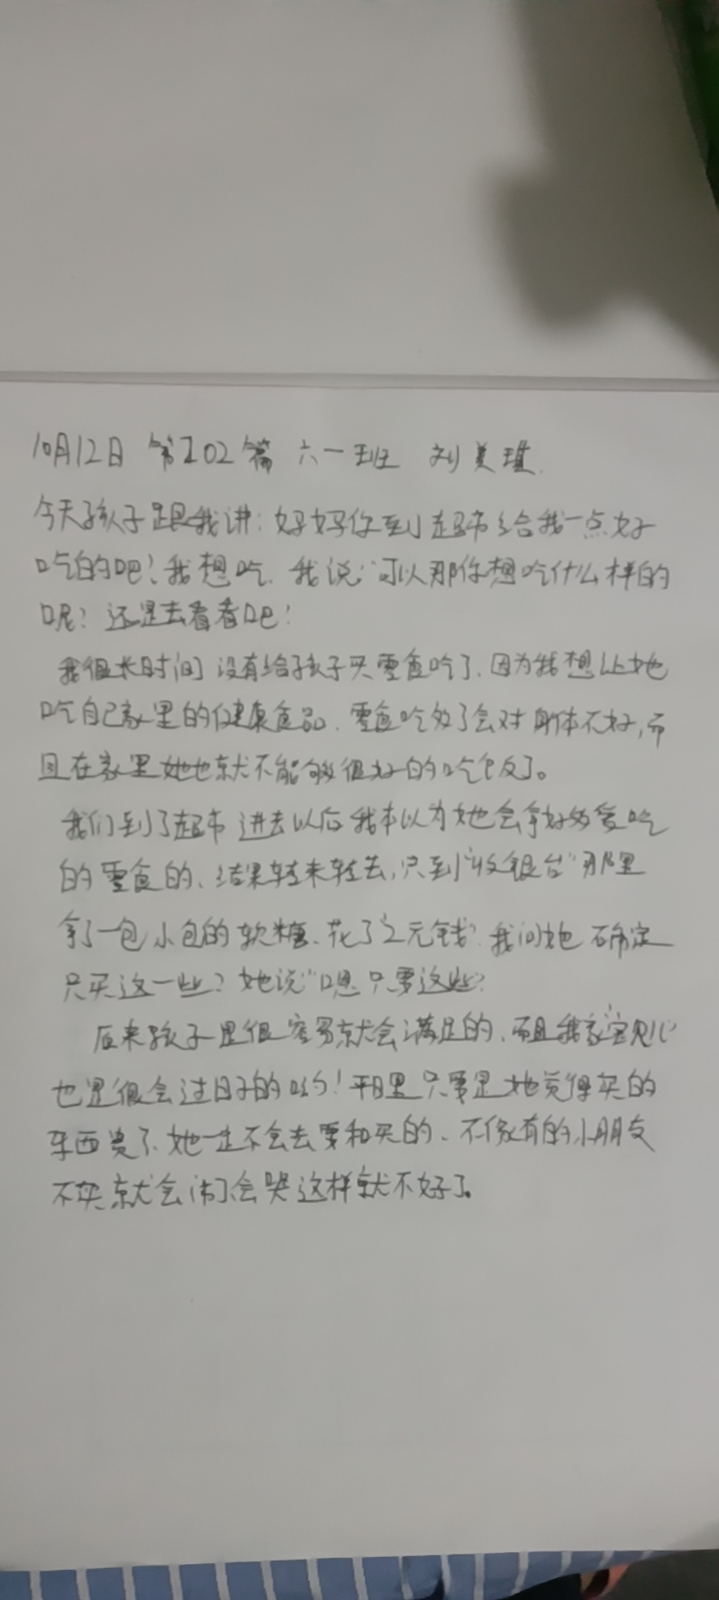 10月12日 第202篇 六一班 刘美琪
今天孩子跟我讲:妈妈你到超市给我一点好
吃的吧!我想吃.我说:可以那你想吃什么样的
呢?还是去看看吧!
我很长时间没有给孩子买零食吃了.因为我想让她
吃自己家里的健康食品.零食吃多了会对身体不好,而
且在家里她也就不能够很好的吃饭了。
我们到了超市进去以后我本以为她会拿好多爱吃
的零食的、结果转来转去,只到“收银台”那里
拿了一包小包的软糖、花了“2元钱”.我问她确定
只买这一些?她说“嗯只要这些?
后来孩子是很容易就会满足的、而且我家“宝贝儿”
也是很会过日子的哟!平日里只要是她觉得买的
东西贵了、她一定不会去要和买的、不像有的小朋友
不买就会闹会哭这样就不好了。